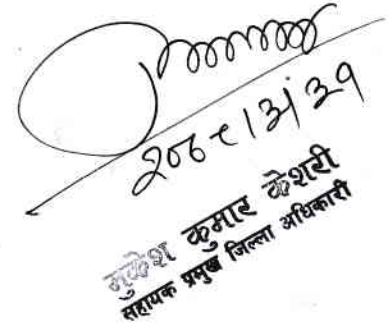 २०७९।३।३१
मुकेश कुमार केशरी
सहायक प्रमुख जिल्ला अधिकारी